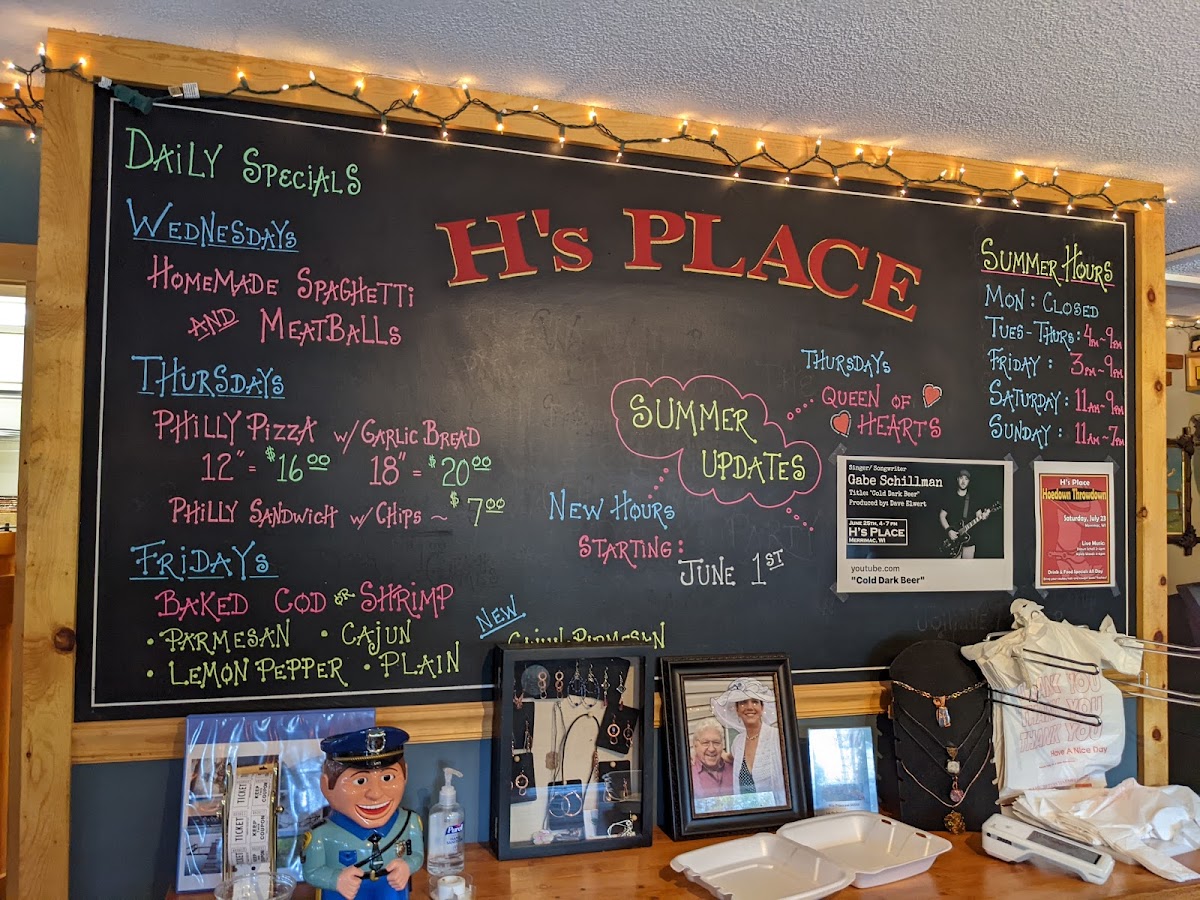 DAILY SPECIALS
WEDNESDAYS
HOMEMADE SPAGHETTI
AND MEATBALLS
THURSDAYS
PHILLY PIZZA W/ GARLIC BREAD
12" = $16.00 18" = $20.00
PHILLY SANDWICH W/ CHIPS ~ $7.00
FRIDAYS
BAKED COD OR SHRIMP
• PARMESAN • CAJUN
• LEMON PEPPER • PLAIN
NEW
CAJUN-PARMESAN
H's PLACE
SUMMER
UPDATES
THURSDAYS
QUEEN OF
HEARTS
NEW HOURS
STARTING:
JUNE 1ST
SUMMER HOURS
MON: CLOSED
TUES-THURS: 4PM~9PM
FRIDAY: 3PM~9PM
SATURDAY: 11AM~9PM
SUNDAY: 11AM~7PM
Singer/ Songwriter
Gabe Schillman
Title: "Cold Dark Beer"
Produced by: Dave Elwert
JUNE 25TH, 4-7 PM
H'S PLACE
MERRIMAC, WI
youtube.com
"Cold Dark Beer"
H's Place
Hoedown Throwdown
Saturday, July 23
Merrimac, WI
Live Music:
Drink & Food Specials All Day
THANK YOU
THANK YOU
THANK YOU
Have A Nice Day
TICKET
KEEP
COUPON
TICKET
Purell